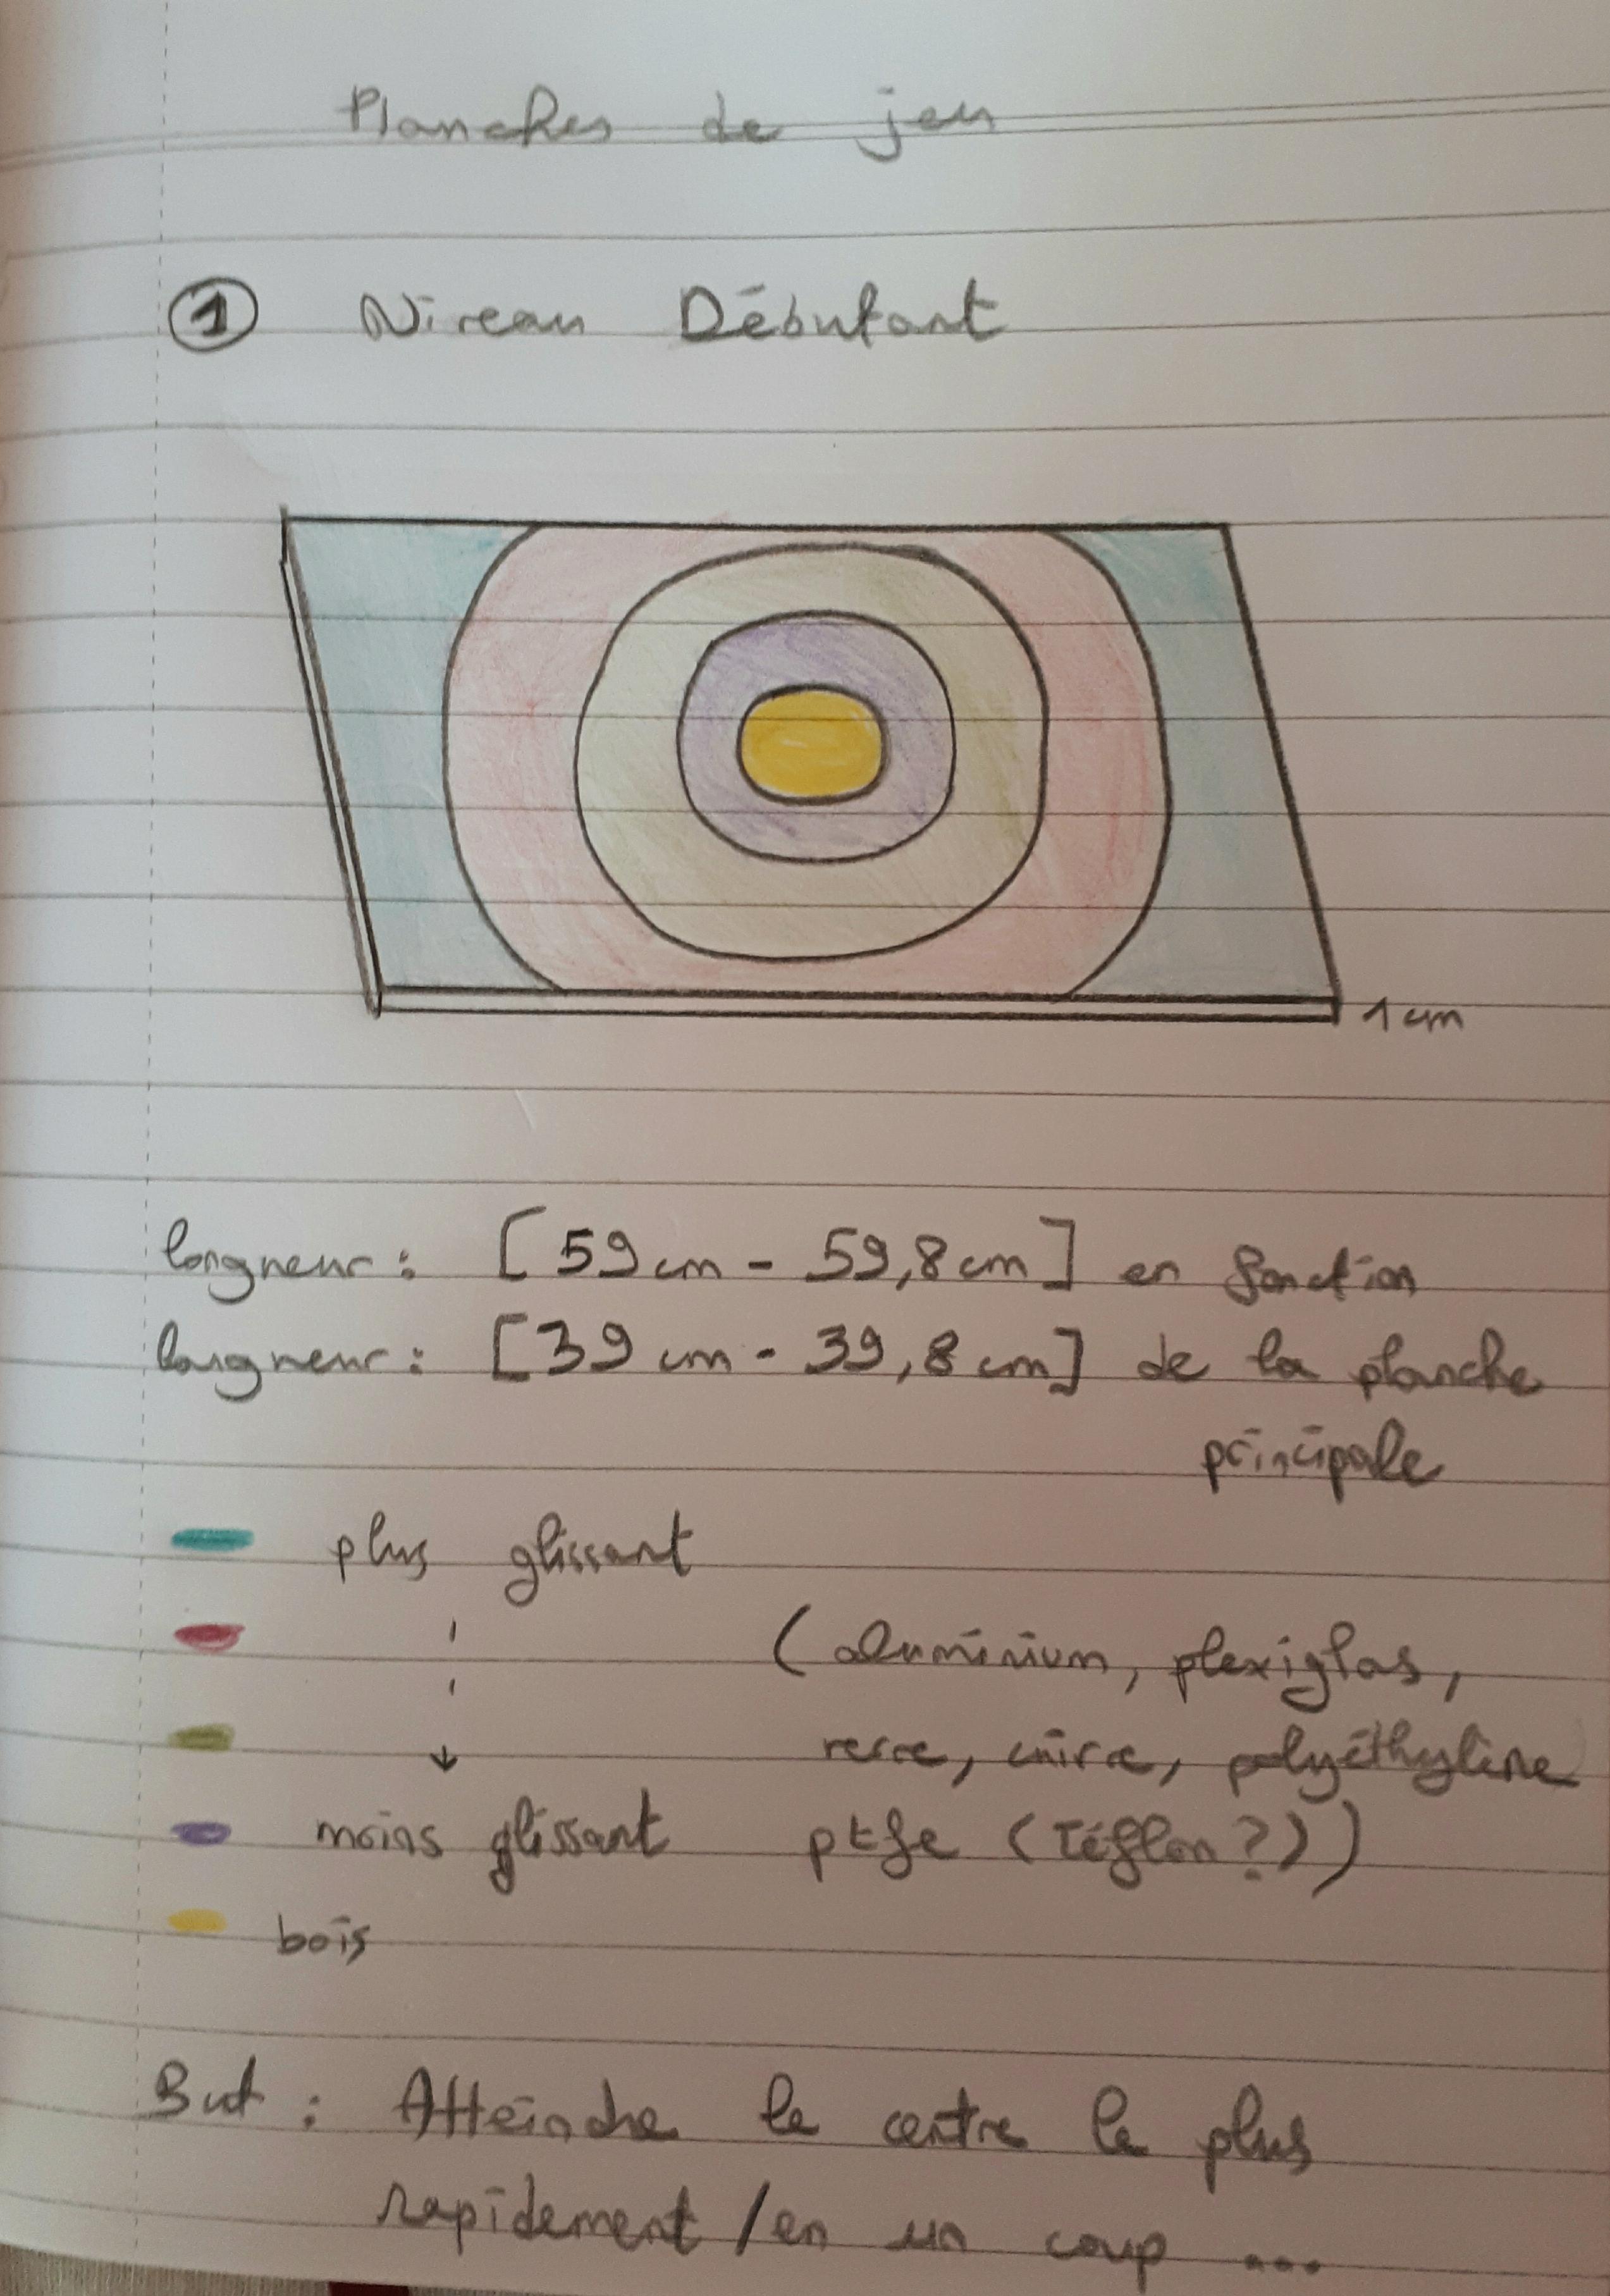 Planches de jeu
1 Niveau Débutant
1 cm
longueur : [59 cm - 59,8 cm] en fonction
largueur : [39 cm - 39,8 cm] de la planche
principale
plus glissant
(aluminium, plexiglas,
verre, cuivre, polyéthylène
moins glissant ptfe (Téflon ?))
bois
But : Atteindre le centre le plus
rapidement / en un coup ...